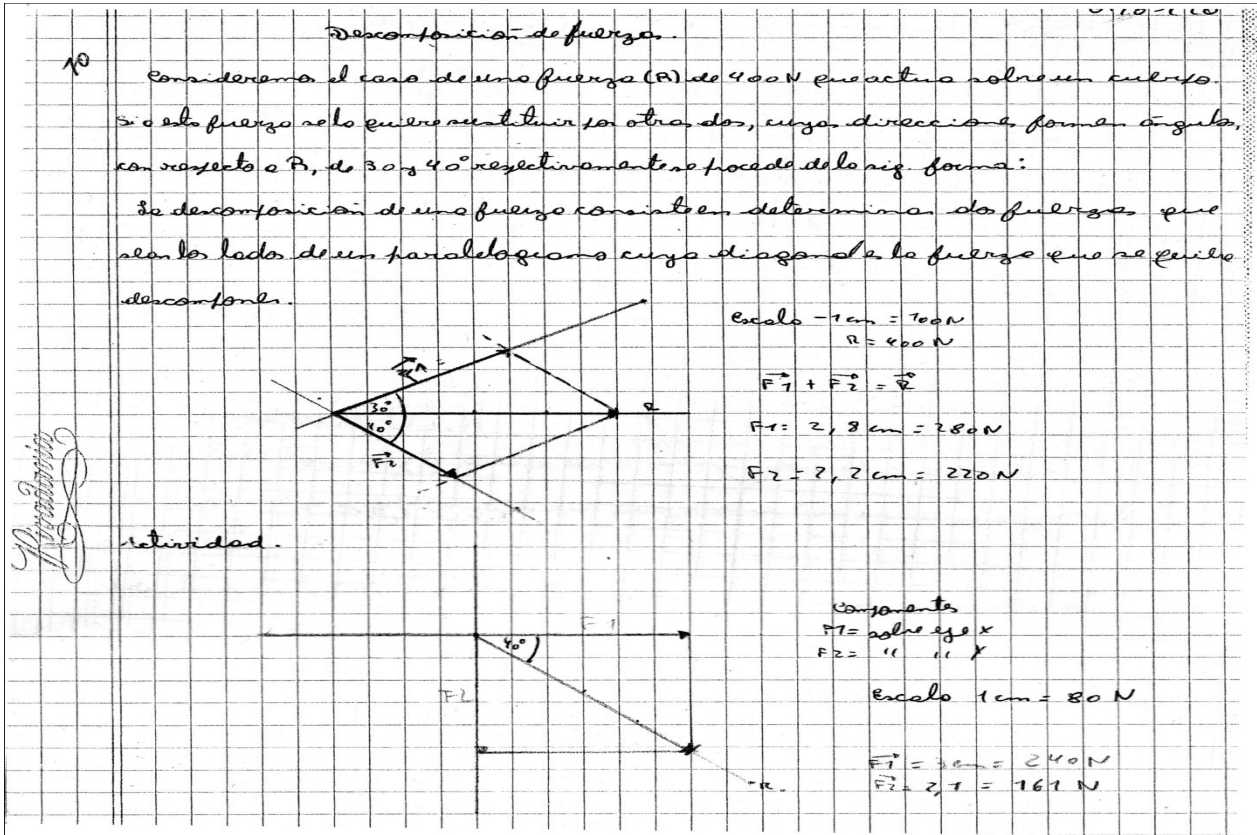 Descomposición de fuerzas.
10
Consideremos el caso de una fuerza (R) de 400 N que actua sobre un cuerpo.
Si a esta fuerza se la quiere sustituir por otras dos, cuyas direcciones forman ángulos,
con respecto a R, de 30 y 40° respectivamente se procede de la sig. forma:
La descomposición de una fuerza consiste en determinar dos fuerzas que
sean los lados de un paralelogramo cuya diagonal es la fuerza que se quiere
descomponer.
Escala - 1 cm = 100 N
R = 400 N
F1 + F2 = R
F1 = 2,8 cm = 280 N
F2 = 2,2 cm = 220 N
30°
40°
R
F2
Rivadavia
Actividad.
Componentes
F1 = sobre eje x
F2 = " " Y
Escala 1 cm = 80 N
F1
40°
F2
R.
F1 = 3 cm = 240 N
F2 = 2,1 = 161 N